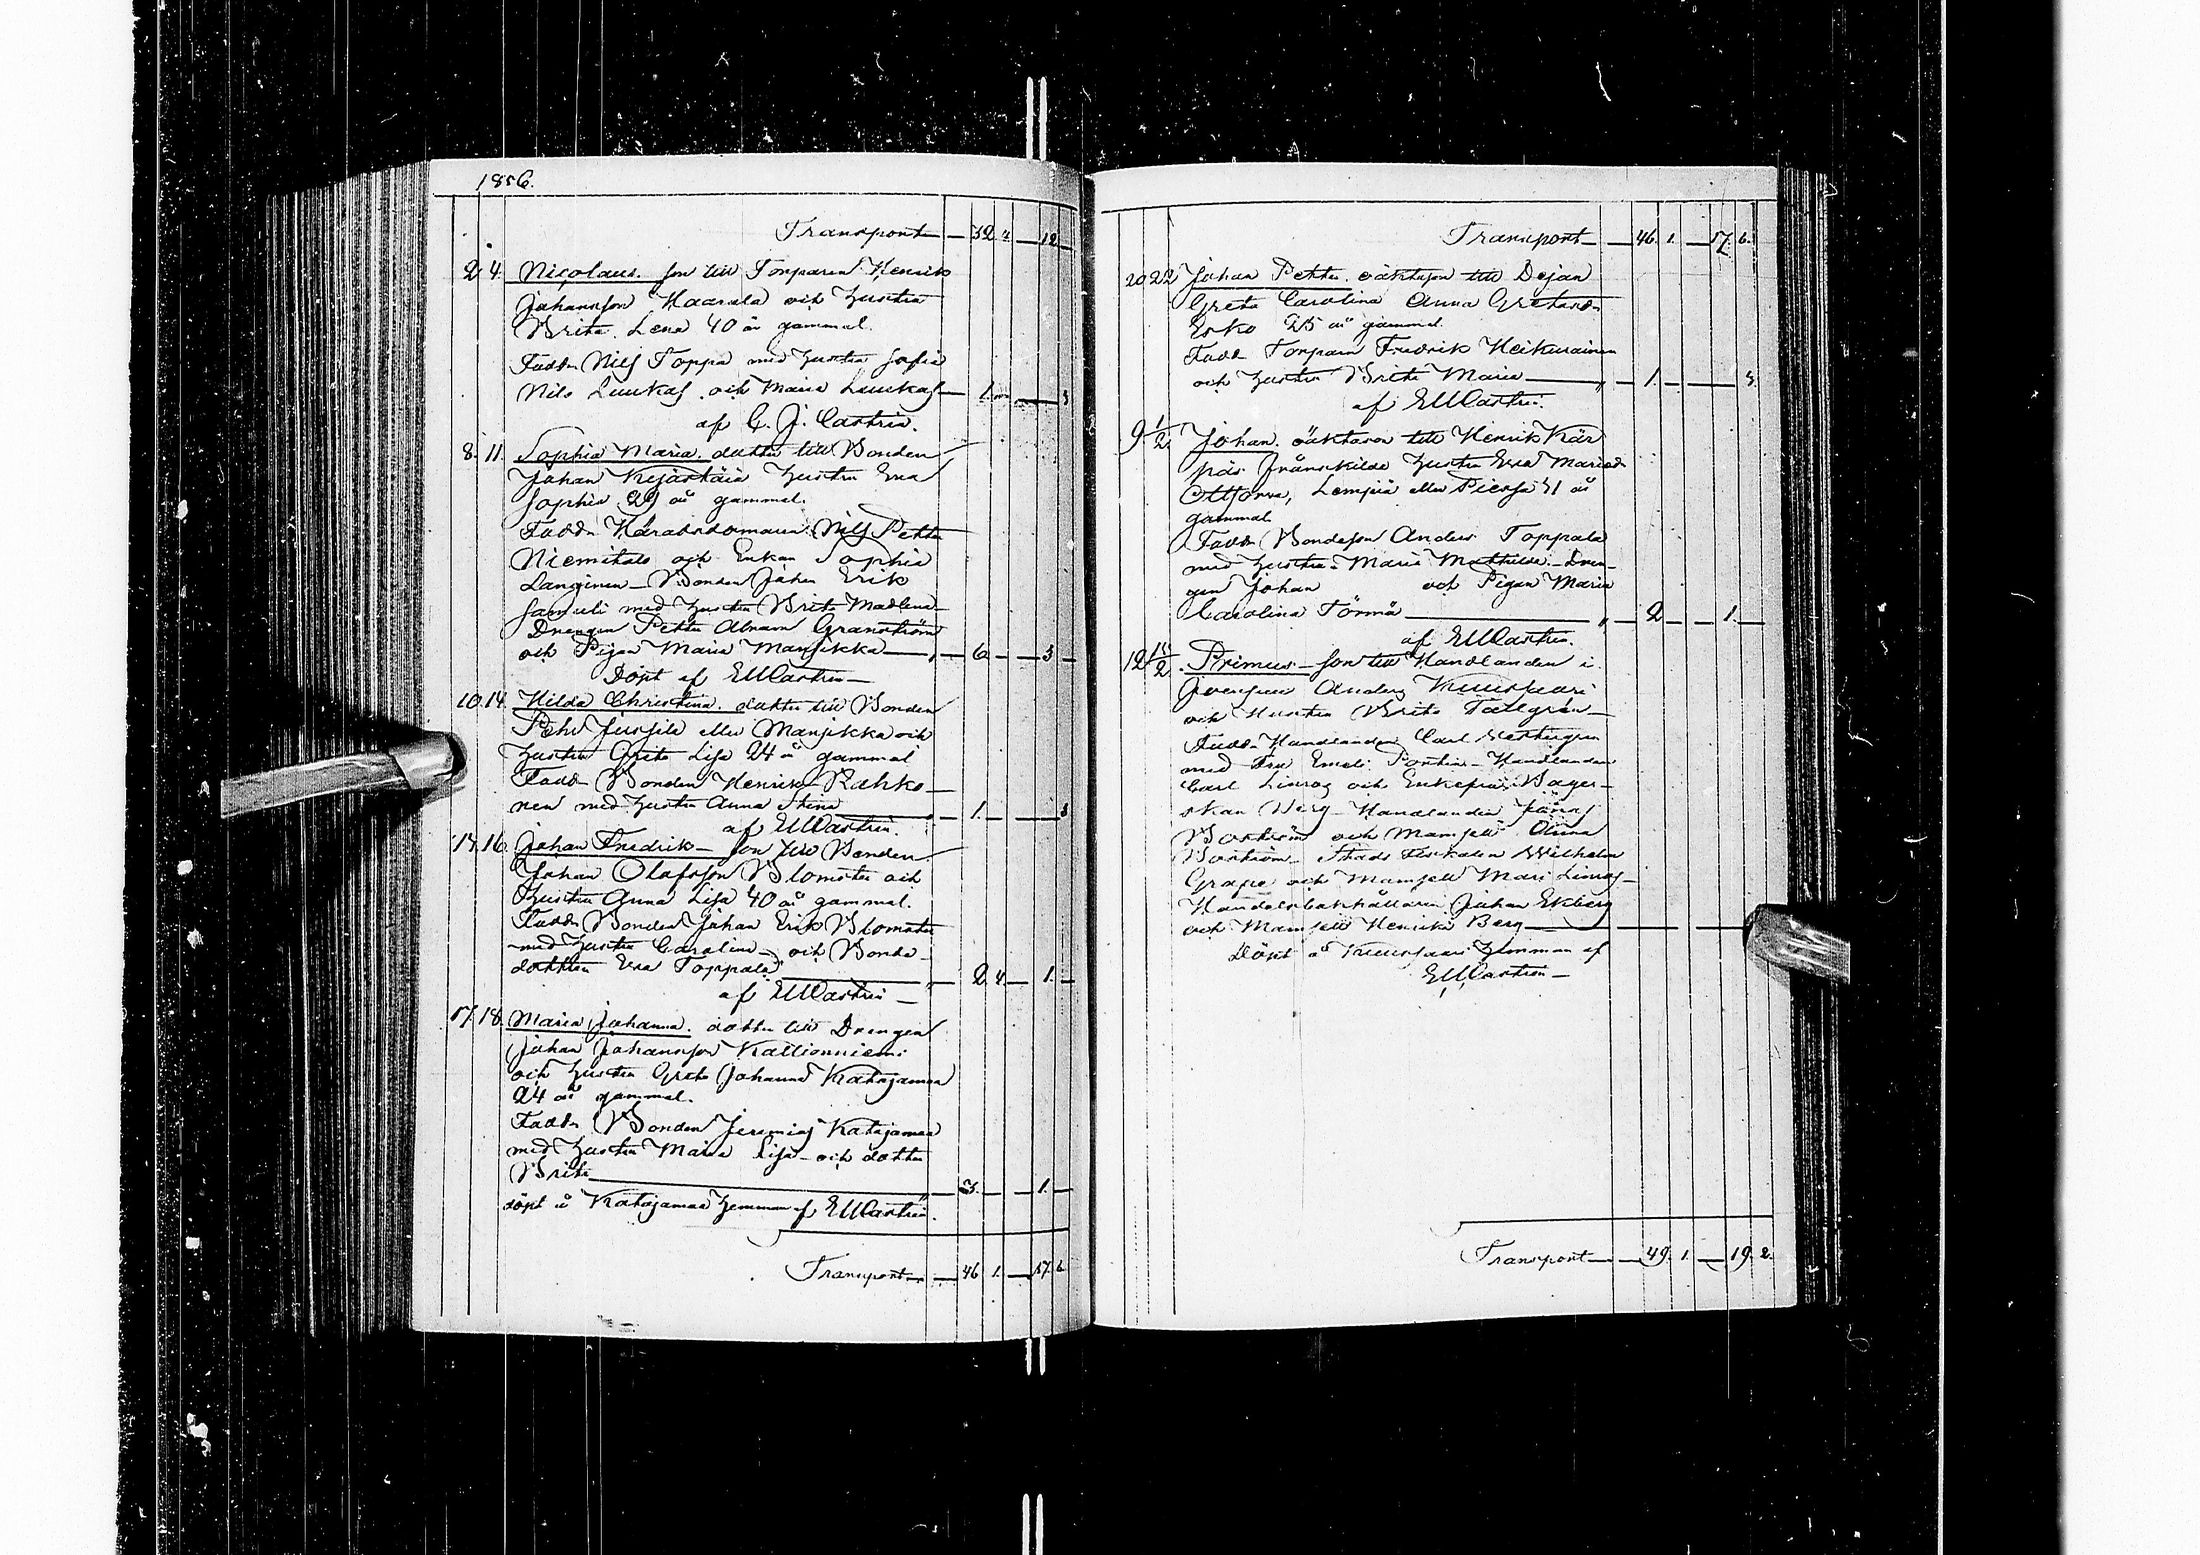 1856.
Transport 32. 4. 12
2. 4. Nicolaus. son till Torparen Henrik
Johansson Haarala och hustru
Brita Lena 40 år gammal.
Fadd. Nils Toppa med hustru Sofia
Nils Luukas och Maria Luukas 1. 3
af C. J. Castrén.
8. 11. Sophia Maria. dotter till Bonden
Johan hustru Eva
Sophia 29 år gammal.
Fadd. Häradsdomaren Nils Petter
Niemitalo och Enkan Sophia
Langinen Bonden Johan Erik
Samuli med hustru Brita Madlena
Drengen Petter Abram Granström
och Pigan Maria Mansikka 6 3
Döpt af EMCastrén
10. 14. Hilda Christina. dotter till Bonden
Pehr Jussila eller Mansikka och
hustru Greta Lisa 24 år gammal
Fadd. Bonden Henrik Rahko-
nen med hustru Anna Stina 1. 3
af EMCastrén.
14. 16. Johan Fredrik son till Bonden
Johan Olafsson Blomster och
hustru Anna Lisa 40 år gammal.
Fadd. Bonden Johan Erik Blomster
med hustru Carolina och Bonde-
dottren Eva Toppala 2. 4. 1.
af EMCastrén
17. 18. Maria Johanna. dotter till Drengen
Johan Johansson Kallionniemi
och hustru Greta Johanna Katajamaa
24 år gammal.
Fadd. Bonden Jeremias Katajamaa
med hustru Maria Lisa och dotter
Brita 3. 1.
döpt å Katajamaa hemman af EMCastrén.
Transport 46 1. 17. 6
Transport 46. 1. 17. 6.
20. 22 Johan Petter. oäkta son till Dejan
Greta Carolina Anna Gretasdr
Erko 25 år gammal.
Fadd. Torparen Fredrik Heikurainen
och hustru Brita Maria 1. 3.
af EMCastrén.
9 1/2 Johan. oäkta son till Henrik Kär
päs frånskilde hustru Eva Mariasdr
Lempiä eller 41 år
gammal.
Fadd. Bondeson Anders Toppala
med hustru Maria Mathilda Dren-
gen Johan och Pigan Maria
Carolina Törmä 2 1.
af EMCastrén.
12 15/2. Primus son till Handlanden i
Anders Kuusijaari
och Hustru Brita Tallgrén
Fadd. Handlanden Carl
med Fru Emeli Handlanden
Carl och Enkefru Bager-
skan Berg Handlanden Jonas
Boström och Mamsell Anna
Boström Stads Fiskalen Wilhelm
Grape och Mamsell Mari
Handelsbokhållaren Johan Ekberg
och Mamsell Henrika Berg
Döpt å Kuusijaari hemman af
EMCastrén
Transport 49. 1. 19. 2.